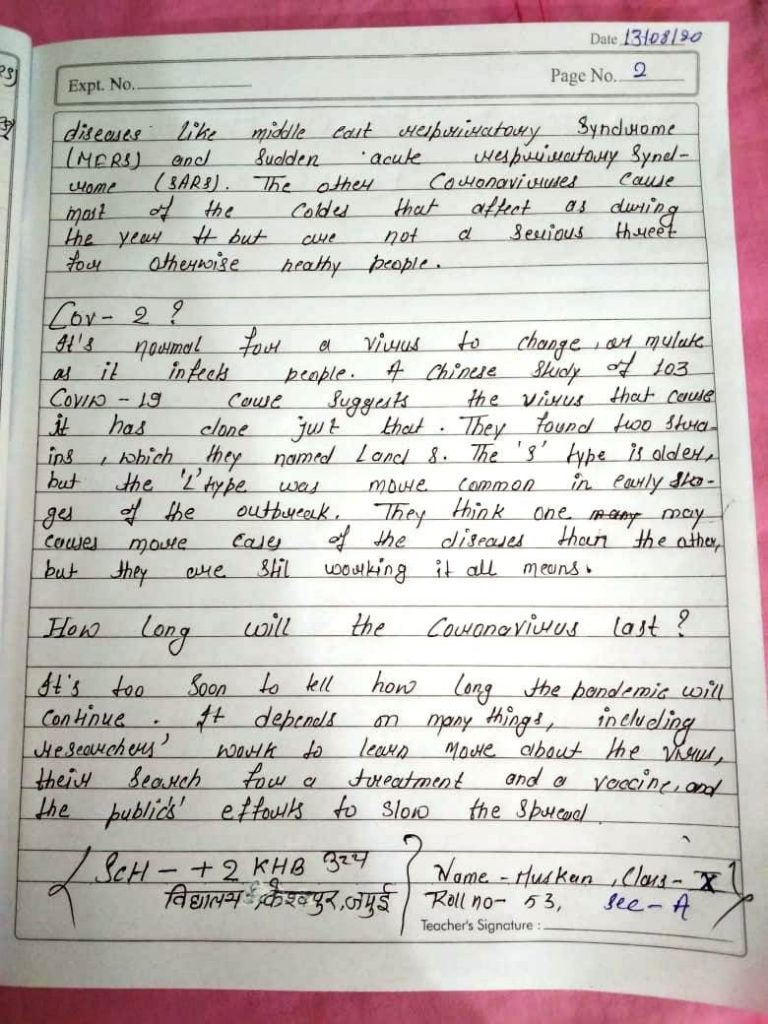 Date 13/08/20
Expt. No.
Page No. 2
diseases like middle east respriratory Syndrome
(MERS) and Sudden acute respriratory Synd-
rome (SARS). The other Coronaviruses Cause
most of the Coldes that affect as during
the year tt but are not a Serious threet
for otherwise healthy people.
Cov-2?
It's normal for a virus to change, or mulate
as it infects people. A Chinese Study of 103
COVID-19 Cause Suggests the virus that cause
it has done just that. They found two stra-
ins, which they named L and S. The 'S' type is older,
but the 'L' type was more common in early sta-
ges of the outbreak. They think one many may
causes more cases of the diseases than the other,
but they are Stil working it all means.
How long will the Coronavirus last?
It's too Soon to tell how long the pandemic will
Continue. It depends on many things, including
researchers' work to learn More about the Virus,
their Search for a treatment and a vaccine, and
the publics' efforts to Slow the Spread
ScH - +2 KHB उच्च
विद्यालय, केशवपुर, जमुई
Name - Muskan, Class - X
Roll no - 53, Sec - A
Teacher's Signature :